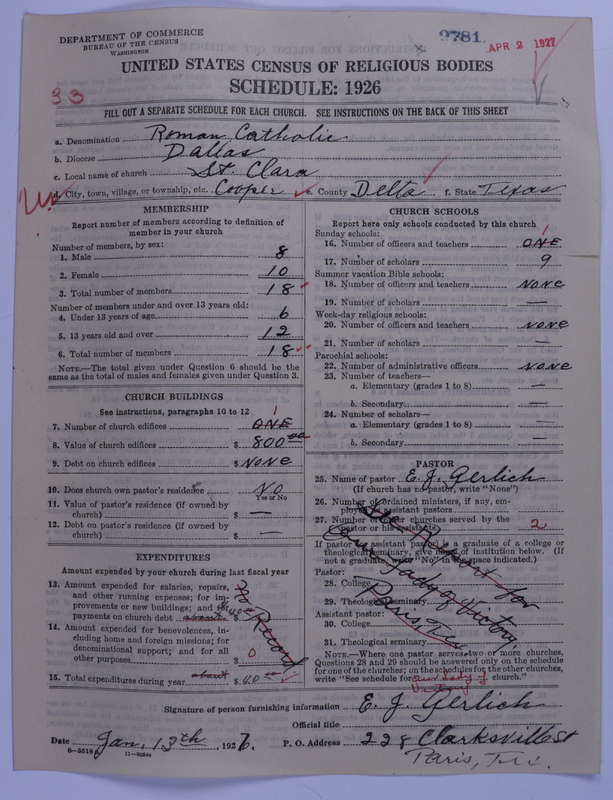 DEPARTMENT OF COMMERCE
BUREAU OF THE CENSUS
WASHINGTON
2781.
APR 2 1927
UNITED STATES CENSUS OF RELIGIOUS BODIES
SCHEDULE: 1926
33
FILL OUT A SEPARATE SCHEDULE FOR EACH CHURCH. SEE INSTRUCTIONS ON THE BACK OF THIS SHEET
a. Denomination Roman Catholic
b. Diocese Dallas
c. Local name of church St. Clara
d. City, town, village, or township, etc. Cooper e. County Delta f. State Texas
MEMBERSHIP
Report number of members according to definition of
member in your church
Number of members, by sex:
1. Male 8
2. Female 10
3. Total number of members 18
Number of members under and over 13 years old:
4. Under 13 years of age 6
5. 13 years old and over 12
6. Total number of members 18
NOTE.—The total given under Question 6 should be the
same as the total of males and females given under Question 3.
CHURCH BUILDINGS
See instructions, paragraphs 10 to 12
1
7. Number of church edifices ONE
8. Value of church edifices $ 800 00
9. Debt on church edifices $ NONE
10. Does church own pastor's residence NO
Yes or No
11. Value of pastor's residence (if owned by
church) $ —
12. Debt on pastor's residence (if owned by
church) $ —
EXPENDITURES
Amount expended by your church during last fiscal year
13. Amount expended for salaries, repairs,
and other running expenses; for im-
provements or new buildings; and for
payments on church debt about $
no Record
14. Amount expended for benevolences, in-
cluding home and foreign missions; for
denominational support; and for all
other purposes $ 0
about
15. Total expenditures during year $ 40 00
CHURCH SCHOOLS
Report here only schools conducted by this church
Sunday schools:
1
16. Number of officers and teachers ONE
17. Number of scholars 9
Summer vacation Bible schools:
18. Number of officers and teachers NONE
19. Number of scholars —
Week-day religious schools:
20. Number of officers and teachers NONE
21. Number of scholars —
Parochial schools:
22. Number of administrative officers NONE
23. Number of teachers—
a. Elementary (grades 1 to 8) —
b. Secondary —
24. Number of scholars—
a. Elementary (grades 1 to 8) —
b. Secondary —
PASTOR
25. Name of pastor E. J. Gerlich
(If church has no pastor, write "None")
26. Number of ordained ministers, if any, em-
ployed as assistant pastors
27. Number of other churches served by the
pastor or his assistants 2
If pastor (or assistant pastor) is a graduate of a college or
theological seminary, give name of institution below. (If
not a graduate, write "No" in the space indicated.)
Pastor:
28. College
29. Theological seminary
Assistant pastor:
30. College
31. Theological seminary
See Report for
Our Lady of Victory,
Paris, Tex
NOTE.—Where one pastor serves two or more churches,
Questions 28 and 29 should be answered only on the schedule
for one of the churches; on the schedules for the other churches,
write "See schedule for our Lady of church."
Victory
Signature of person furnishing information E. J. Gerlich
Official title
Date Jan. 13th, 1927. P. O. Address 228 Clarksville St
Paris, Tex.